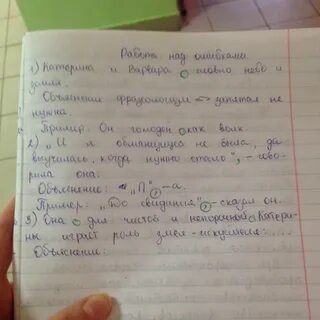 Работа над ошибками.
1) Катерина и Варвара словно небо и
земля.
Объяснение: фразеологизм => запятая не
нужна.
Пример: Он голоден как волк.
2) „И я обманщица не была, да
выучилась, когда нужно стало", - гово-
рила она.
Объяснение: „П", - а.
Пример: „До свидания", - сказал он.
3) Она для чистой и непорочной Катери-
ны играет роль змея-искусителя:...
Объяснение: